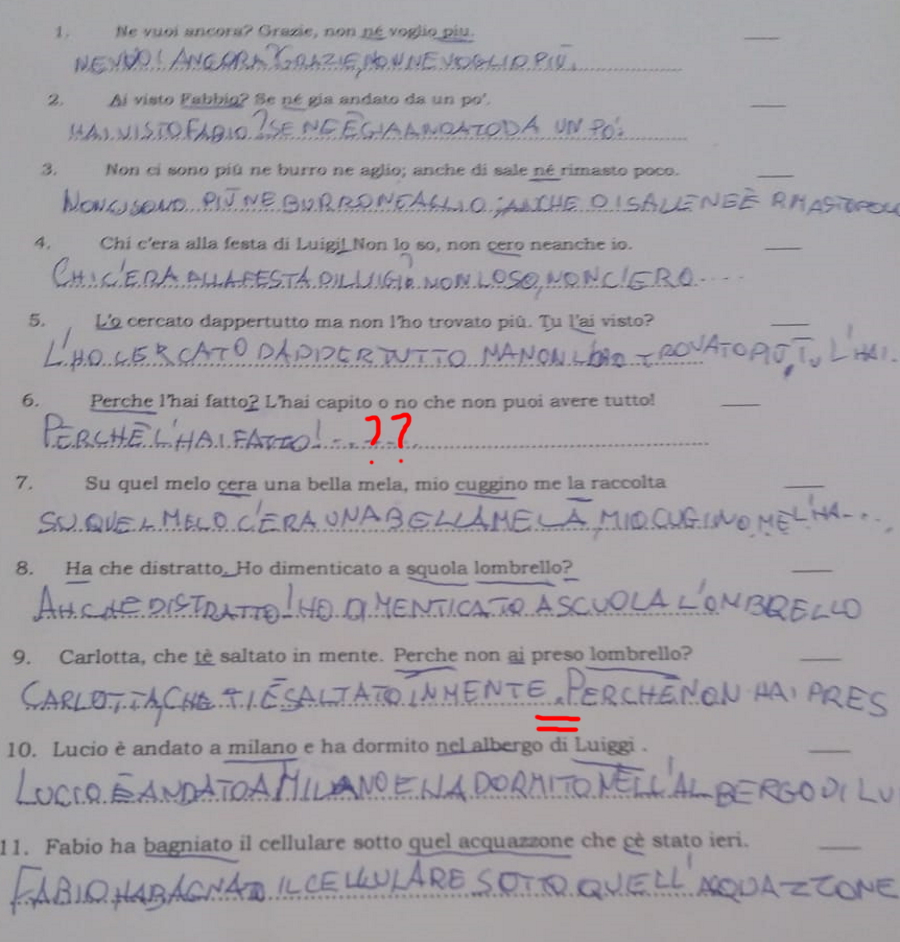 1. Ne vuoi ancora? Grazie, non né voglio piu.
NE VUOI ANCORA? GRAZIE, NON NE VOGLIO PIÙ.
2. Ai visto Fabbio? Se né gia andato da un po'.
HAI VISTO FABIO? SE NE È GIA ANDATO DA UN PO'.
3. Non ci sono più ne burro ne aglio; anche di sale né rimasto poco.
NON CI SONO PIÙ NE BURRO NE AGLIO; ANCHE DI SALE NE È RIMASTO POCO
4. Chi c'era alla festa di Luigi! Non lo so, non cero neanche io.
CHI C'ERA ALLA FESTA DI LUIGI? NON LO SO, NON C'ERO....
5. L'o cercato dappertutto ma non l'ho trovato più. Tu l'ai visto?
L'HO CERCATO DAPPERTUTTO MA NON L'HO TROVATO PIÙ, TU L'HAI..
6. Perche l'hai fatto? L'hai capito o no che non puoi avere tutto!
PERCHÈ L'HAI FATTO!...??
7. Su quel melo cera una bella mela, mio cuggino me la raccolta
SU QUEL MELO C'ERA UNA BELLA MELA, MIO CUGINO ME L'HA...
8. Ha che distratto. Ho dimenticato a squola lombrello?
AH CHE DISTRATTO! HO DIMENTICATO A SCUOLA L'OMBRELLO
9. Carlotta, che tè saltato in mente. Perche non ai preso lombrello?
CARLOTTA, CHE TI È SALTATO IN MENTE. PERCHÈ NON HAI PRES
10. Lucio è andato a milano e ha dormito nel albergo di Luiggi .
LUCIO È ANDATO A MILANO E HA DORMITO NELL'ALBERGO DI LU
11. Fabio ha bagniato il cellulare sotto quel acquazzone che cè stato ieri.
FABIO HA BAGNATO IL CELLULARE SOTTO QUELL'ACQUAZZONE